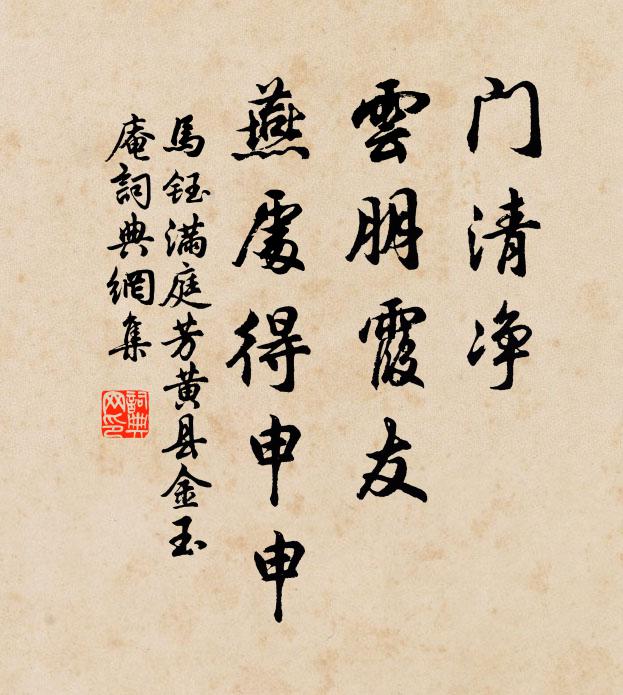 门清净
雲朋霞友
燕處得申申
馬鈺满庭芳黄县金玉
庵詞典網集
詞典网印